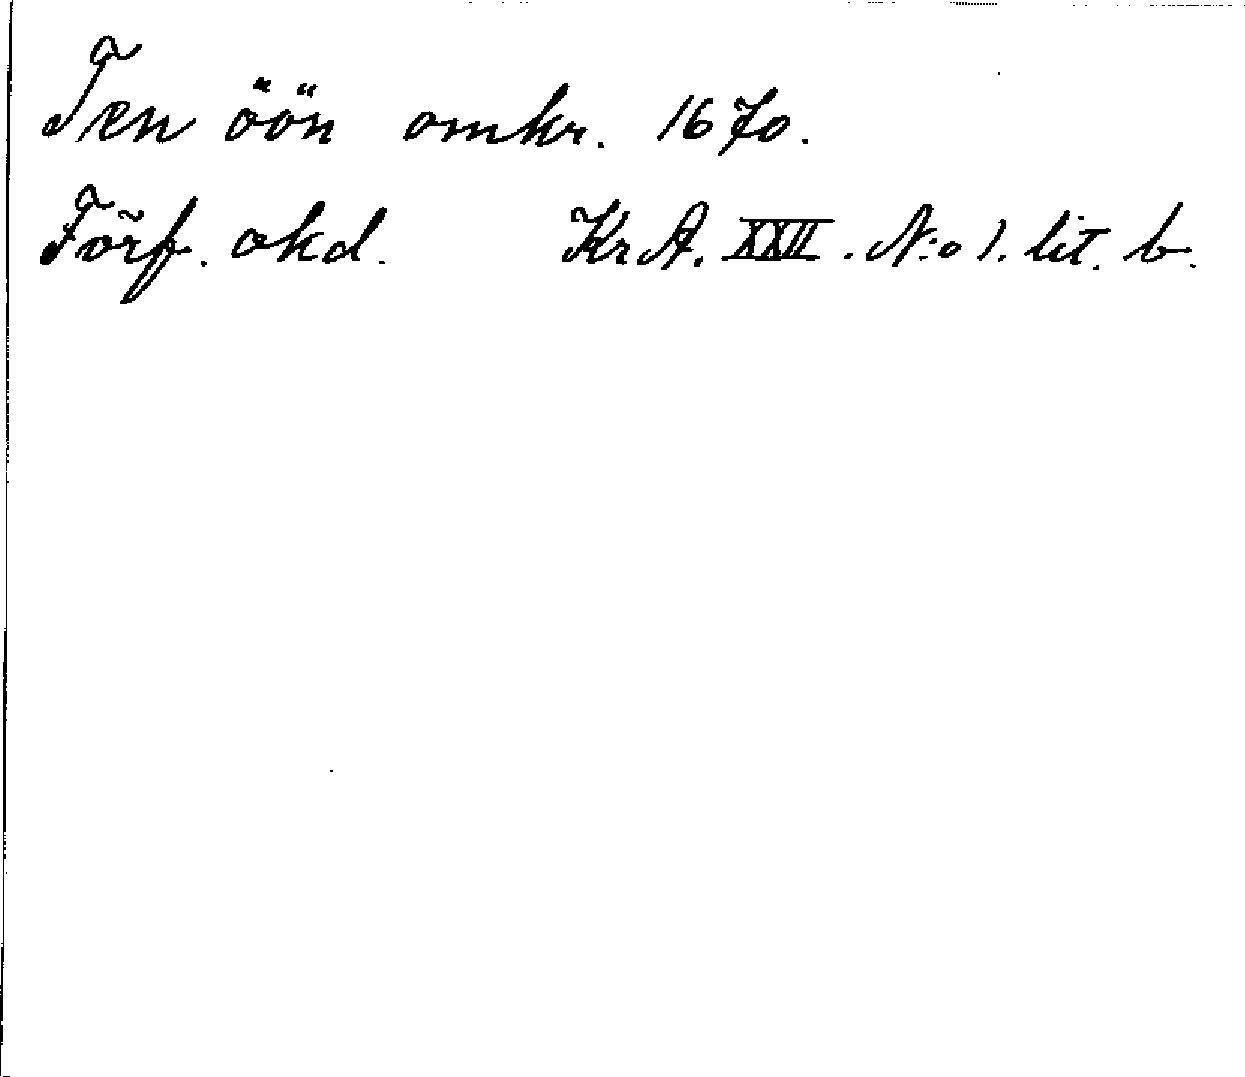 Ten öön omkr. 1670.
Förf. okd. Kr A. XXII. N:o 1. lit. b.